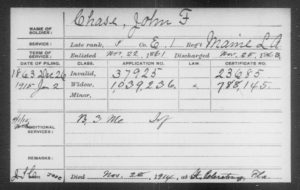 NAME OF SOLDIER: Chase, John F
SERVICE: Late rank, P Co. E, 1 Reg't Maine L A
TERM OF SERVICE: Enlisted Nov 22, 1861 Discharged Nov. 25, 1862
DATE OF FILING. CLASS. APPLICATION NO. CERTIFICATE NO.
1863 Dec 26 Invalid, 37925 23685
1915 Jan 2 Widow, 1039236 788145
Minor,
ADDITIONAL SERVICES: B 3 Me
REMARKS:
Died Nov. 28, 1914, at St. Petersburg, Fla